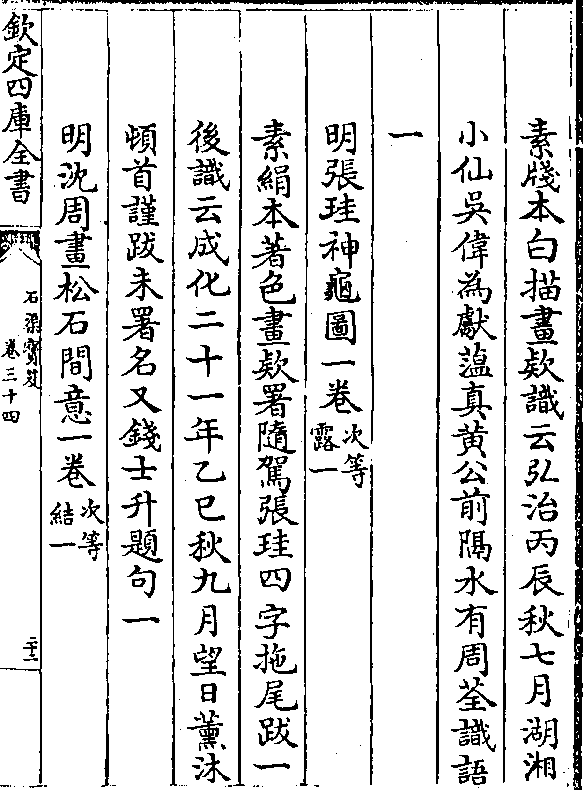 素牋本白描畫欵識云弘治丙辰秋七月湖湘
小仙吳偉為獻薀真黄公前隔水有周荃識語
一
明張珪神龜圖一卷 次等
露一
素絹本著色畫欵署隨駕張珪四字拖尾跋一
後識云成化二十一年乙巳秋九月望日薰沐
頓首謹跋未署名又錢士升題句一
明沈周畫松石間意一卷 次等
結一
欽定四庫全書
石渠寶笈
卷三十四